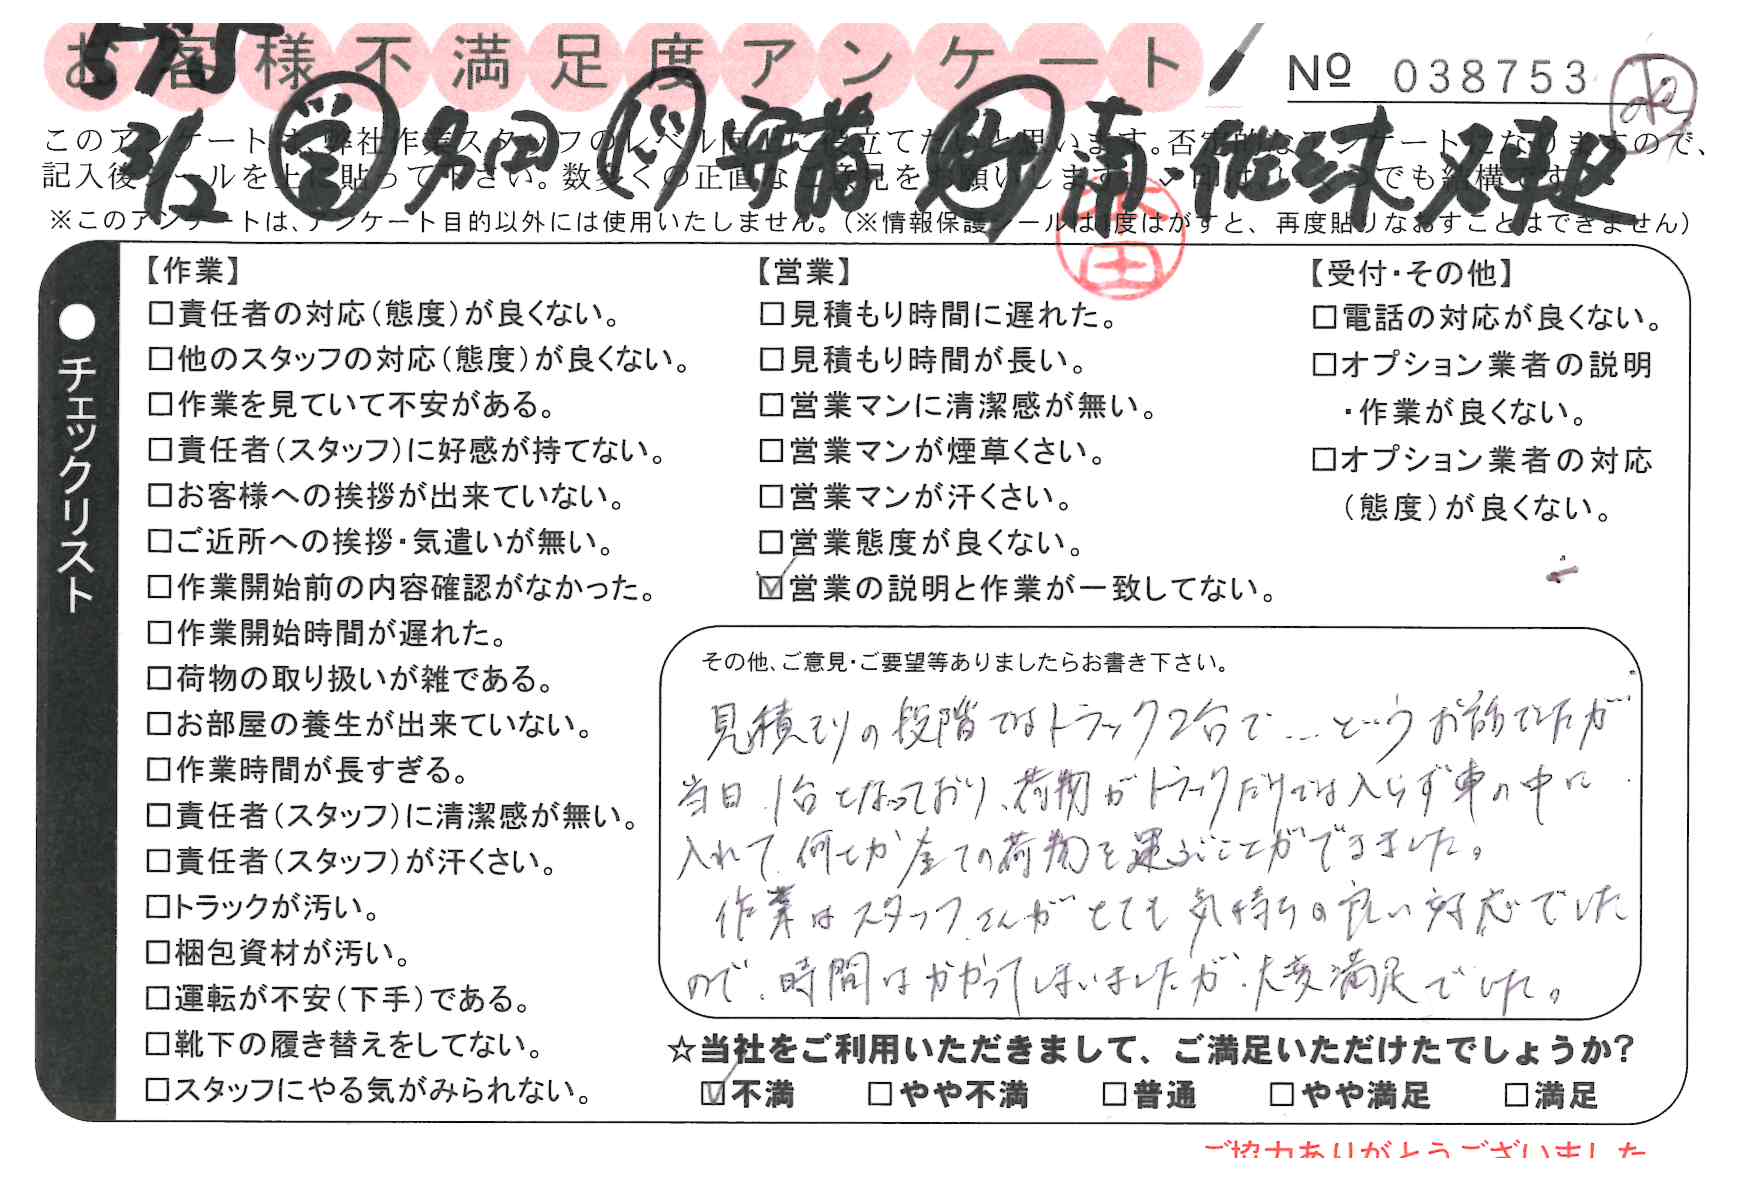 お客様不満足度アンケート
№ 038753
5775
3/12 営 多田 ド 安藤 助 南・佐々木
このアンケートは、弊社作業スタッフのレベル向上に役立てたいと思います。否定的なアンケートになりますので、
記入後シールを上に貼って下さい。数多くの正直なご意見をお願いします。
※このアンケートは、アンケート目的以外には使用いたしません。（※情報保護シールは1度はがすと、再度貼りなおすことはできません）
●チェックリスト
【作業】
□責任者の対応（態度）が良くない。
□他のスタッフの対応（態度）が良くない。
□作業を見ていて不安がある。
□責任者（スタッフ）に好感が持てない。
□お客様への挨拶が出来ていない。
□ご近所への挨拶・気遣いが無い。
□作業開始前の内容確認がなかった。
□作業開始時間が遅れた。
□荷物の取り扱いが雑である。
□お部屋の養生が出来ていない。
□作業時間が長すぎる。
□責任者（スタッフ）に清潔感が無い。
□責任者（スタッフ）が汗くさい。
□トラックが汚い。
□梱包資材が汚い。
□運転が不安（下手）である。
□靴下の履き替えをしてない。
□スタッフにやる気がみられない。
【営業】
□見積もり時間に遅れた。
□見積もり時間が長い。
□営業マンに清潔感が無い。
□営業マンが煙草くさい。
□営業マンが汗くさい。
□営業態度が良くない。
☑営業の説明と作業が一致してない。
【受付・その他】
□電話の対応が良くない。
□オプション業者の説明
・作業が良くない。
□オプション業者の対応
（態度）が良くない。
その他、ご意見・ご要望等ありましたらお書き下さい。
見積もりの段階ではトラック2台で…というお話でしたが
当日、1台となっており、荷物がトラックだけでは入らず車の中に
入れて、何とか全ての荷物を運ぶことができました。
作業はスタッフさんがとても気持ちの良い対応でした
ので、時間はかかってしまいましたが、大変満足でした。
☆当社をご利用いただきまして、ご満足いただけたでしょうか?
☑不満 □やや不満 □普通 □やや満足 □満足
ご協力ありがとうございました